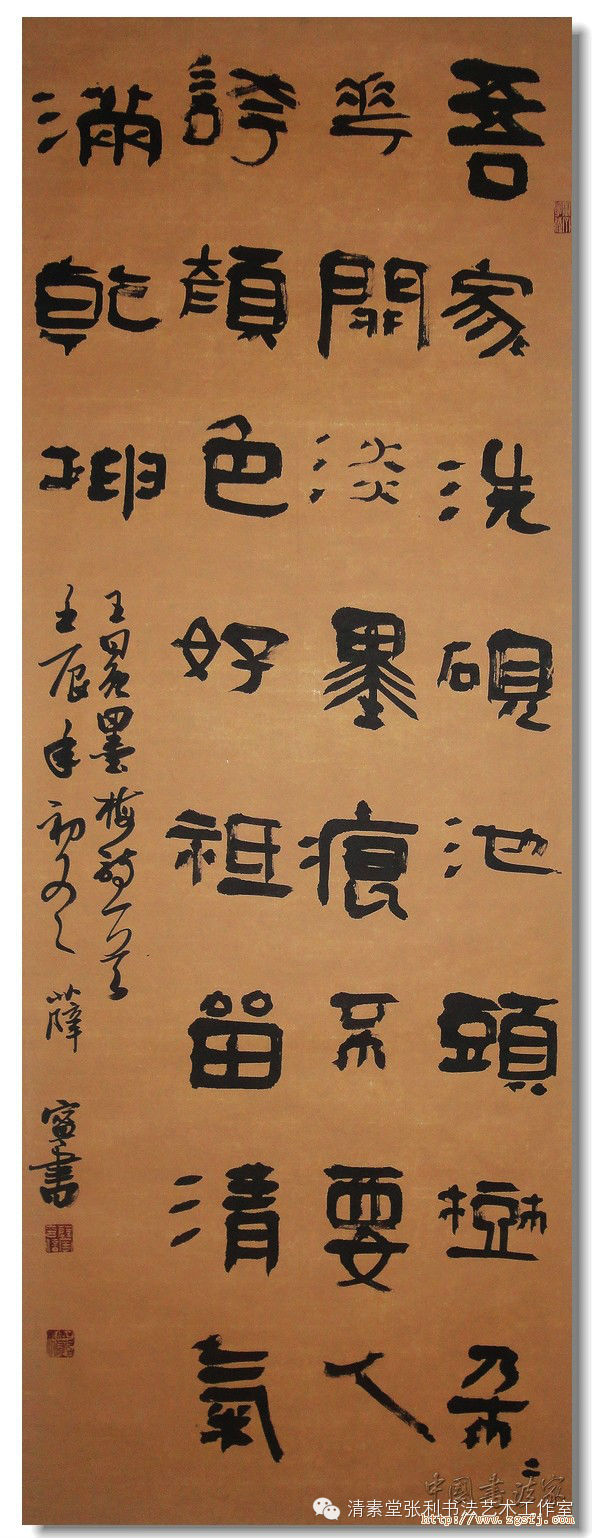 吾家洗硯池頭樹朵二
華開淡墨痕不要人
誇顏色好祗留清氣
滿乾坤
王冕墨梅詩一首
壬辰年初 薛 書
中國書法家
清素堂张利书法艺术工作室
http://www.zgsfj.com